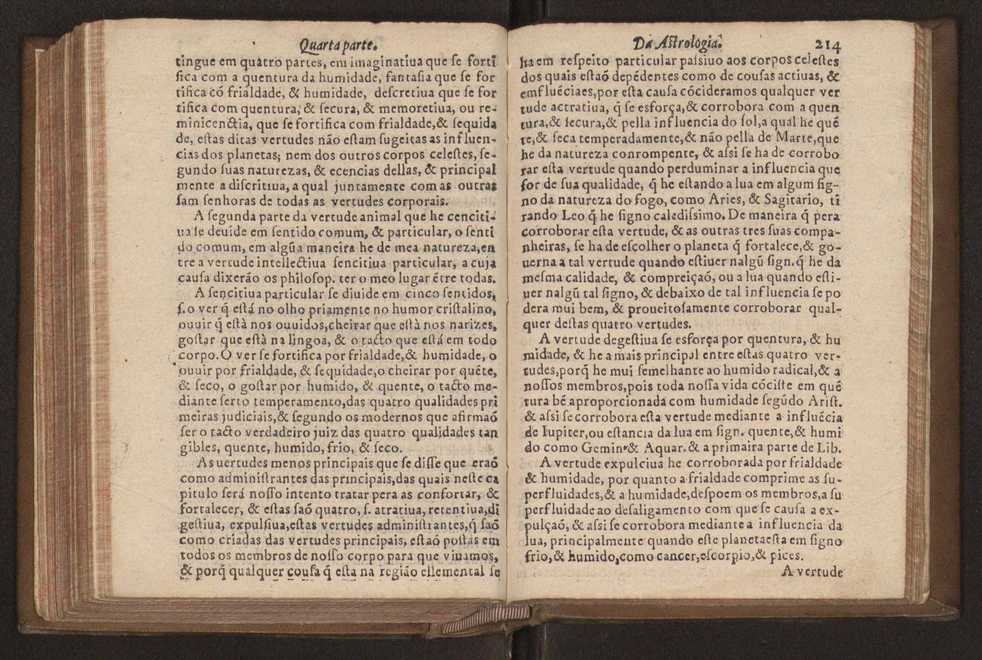 Quarta parte.
tingue em quatro partes, em imaginatiua que se forti
fica com a quentura da humidade, fantasia que se for
tifica cõ frialdade, & humidade, descretiua que se for
tifica com quentura, & secura, & memoretiua, ou re-
minicenctia, que se fortifica com frialdade,& sequida
de, estas ditas vertudes não estam sugeitas as influen-
cias dos planetas; nem dos outros corpos celestes, se-
gundo suas naturezas, & ecencias dellas, & principal
mente a discritiua, a qual juntamente com as outras
sam senhoras de todas as vertudes corporais.
A segunda parte da vertude animal que he cenciti-
ua se deuide em sentido comum, & particular, o senti
do comum, em algũa maneira he de mea natureza,en
tre a vertude intellectiua sencitiua particular, a cuja
causa dixerão os philosop. ter o meo lugar ẽtre todas.
A sencitiua particular se diuide em cinco sentidos,
s.o ver q̃ està no olho priamente no humor cristalino,
ouuir q̃ està nos ouuidos,cheirar que està nos narizes,
gostar que està na lingoa, & o tacto que està em todo
corpo. O ver se fortifica por frialdade,& humidade, o
ouuir por frialdade, & sequidade,o cheirar por quẽte,
& seco, o gostar por humido, & quente, o tacto me-
diante serto temperamento,das quatro qualidades pri
meiras judiciais,& segundo os modernos que afirmaõ
ser o tacto verdadeiro juiz das quatro qualidades tan
gibles, quente, humido, frio, & seco.
As vertudes menos principais que se disse que eraõ
como administrantes das principais,das quais neste ca
pitulo será nosso intento tratar pera as confortar, &
fortalecer, & estas saõ quatro, s. atratiua, retentiua,di
gestiua, expulsiua,estas vertudes administrantes,q̃ saõ
como criadas das vertudes principais, estaõ postas em
todos os membros de nosso corpo para que viuamos,
& porq̃ qualquer cousa q̃ esta na região ellemental se
Da Astrologia. 214
ha em respeito particular passiuo aos corpos celestes
dos quais estaõ depẽdentes como de cousas actiuas, &
emfluẽciaes,por esta causa cõcideramos qualquer ver
tude actratiua, q̃ se esforça,& corrobora com a quen
tura,& secura,& pella influencia do sol,a qual he quẽ
te,& seca temperadamente,& não pella de Marte,que
he da natureza conrompente, & assi se ha de corrobo
rar esta vertude quando perduminar a influencia que
for de sua qualidade, q̃ he estando a lua em algum sig-
no da natureza do fogo, como Aries, & Sagitario, ti
rando Leo q̃ he signo caledissimo. De maneira q̃ pera
corroborar esta vertude, & as outras tres suas compa-
nheiras, se ha de escolher o planeta q̃ fortalece,& go-
uerna a tal vertude quando estiuer nalgũ sign.q̃ he da
mesma calidade, & compreiçaõ, ou a lua quando esti-
uer nalgũ tal signo, & debaixo de tal influencia se po
dera mui bem, & proueitosamente corroborar qual-
quer destas quatro vertudes.
A vertude degestiua se esforça por quentura, & hu
midade, & he a mais principal entre estas quatro ver-
tudes,porq̃ he mui semelhante ao humido radical,& a
nossos membros,pois toda nossa vida cõciste em quẽ
tura bẽ aproporcionada com humidade segũdo Arist.
& assi se corrobora esta vertude mediante a influẽcia
de Iupiter,ou estancia da lua em sign. quente,& humi
do como Gemin.& Aquar. & a primaira parte de Lib.
A vertude expulciua he corroborada por frialdade
& humidade, por quanto a frialdade comprime as su-
perfluidades,& a humidade,despoem os membros,a su
perfluidade ao desaligamento com que se causa a ex-
pulçaõ, & assi se corrobora mediante a influencia da
lua, principalmente quando este planeta esta em signo
frio,& humido,como cancer,escorpio,& pices.
A vertude